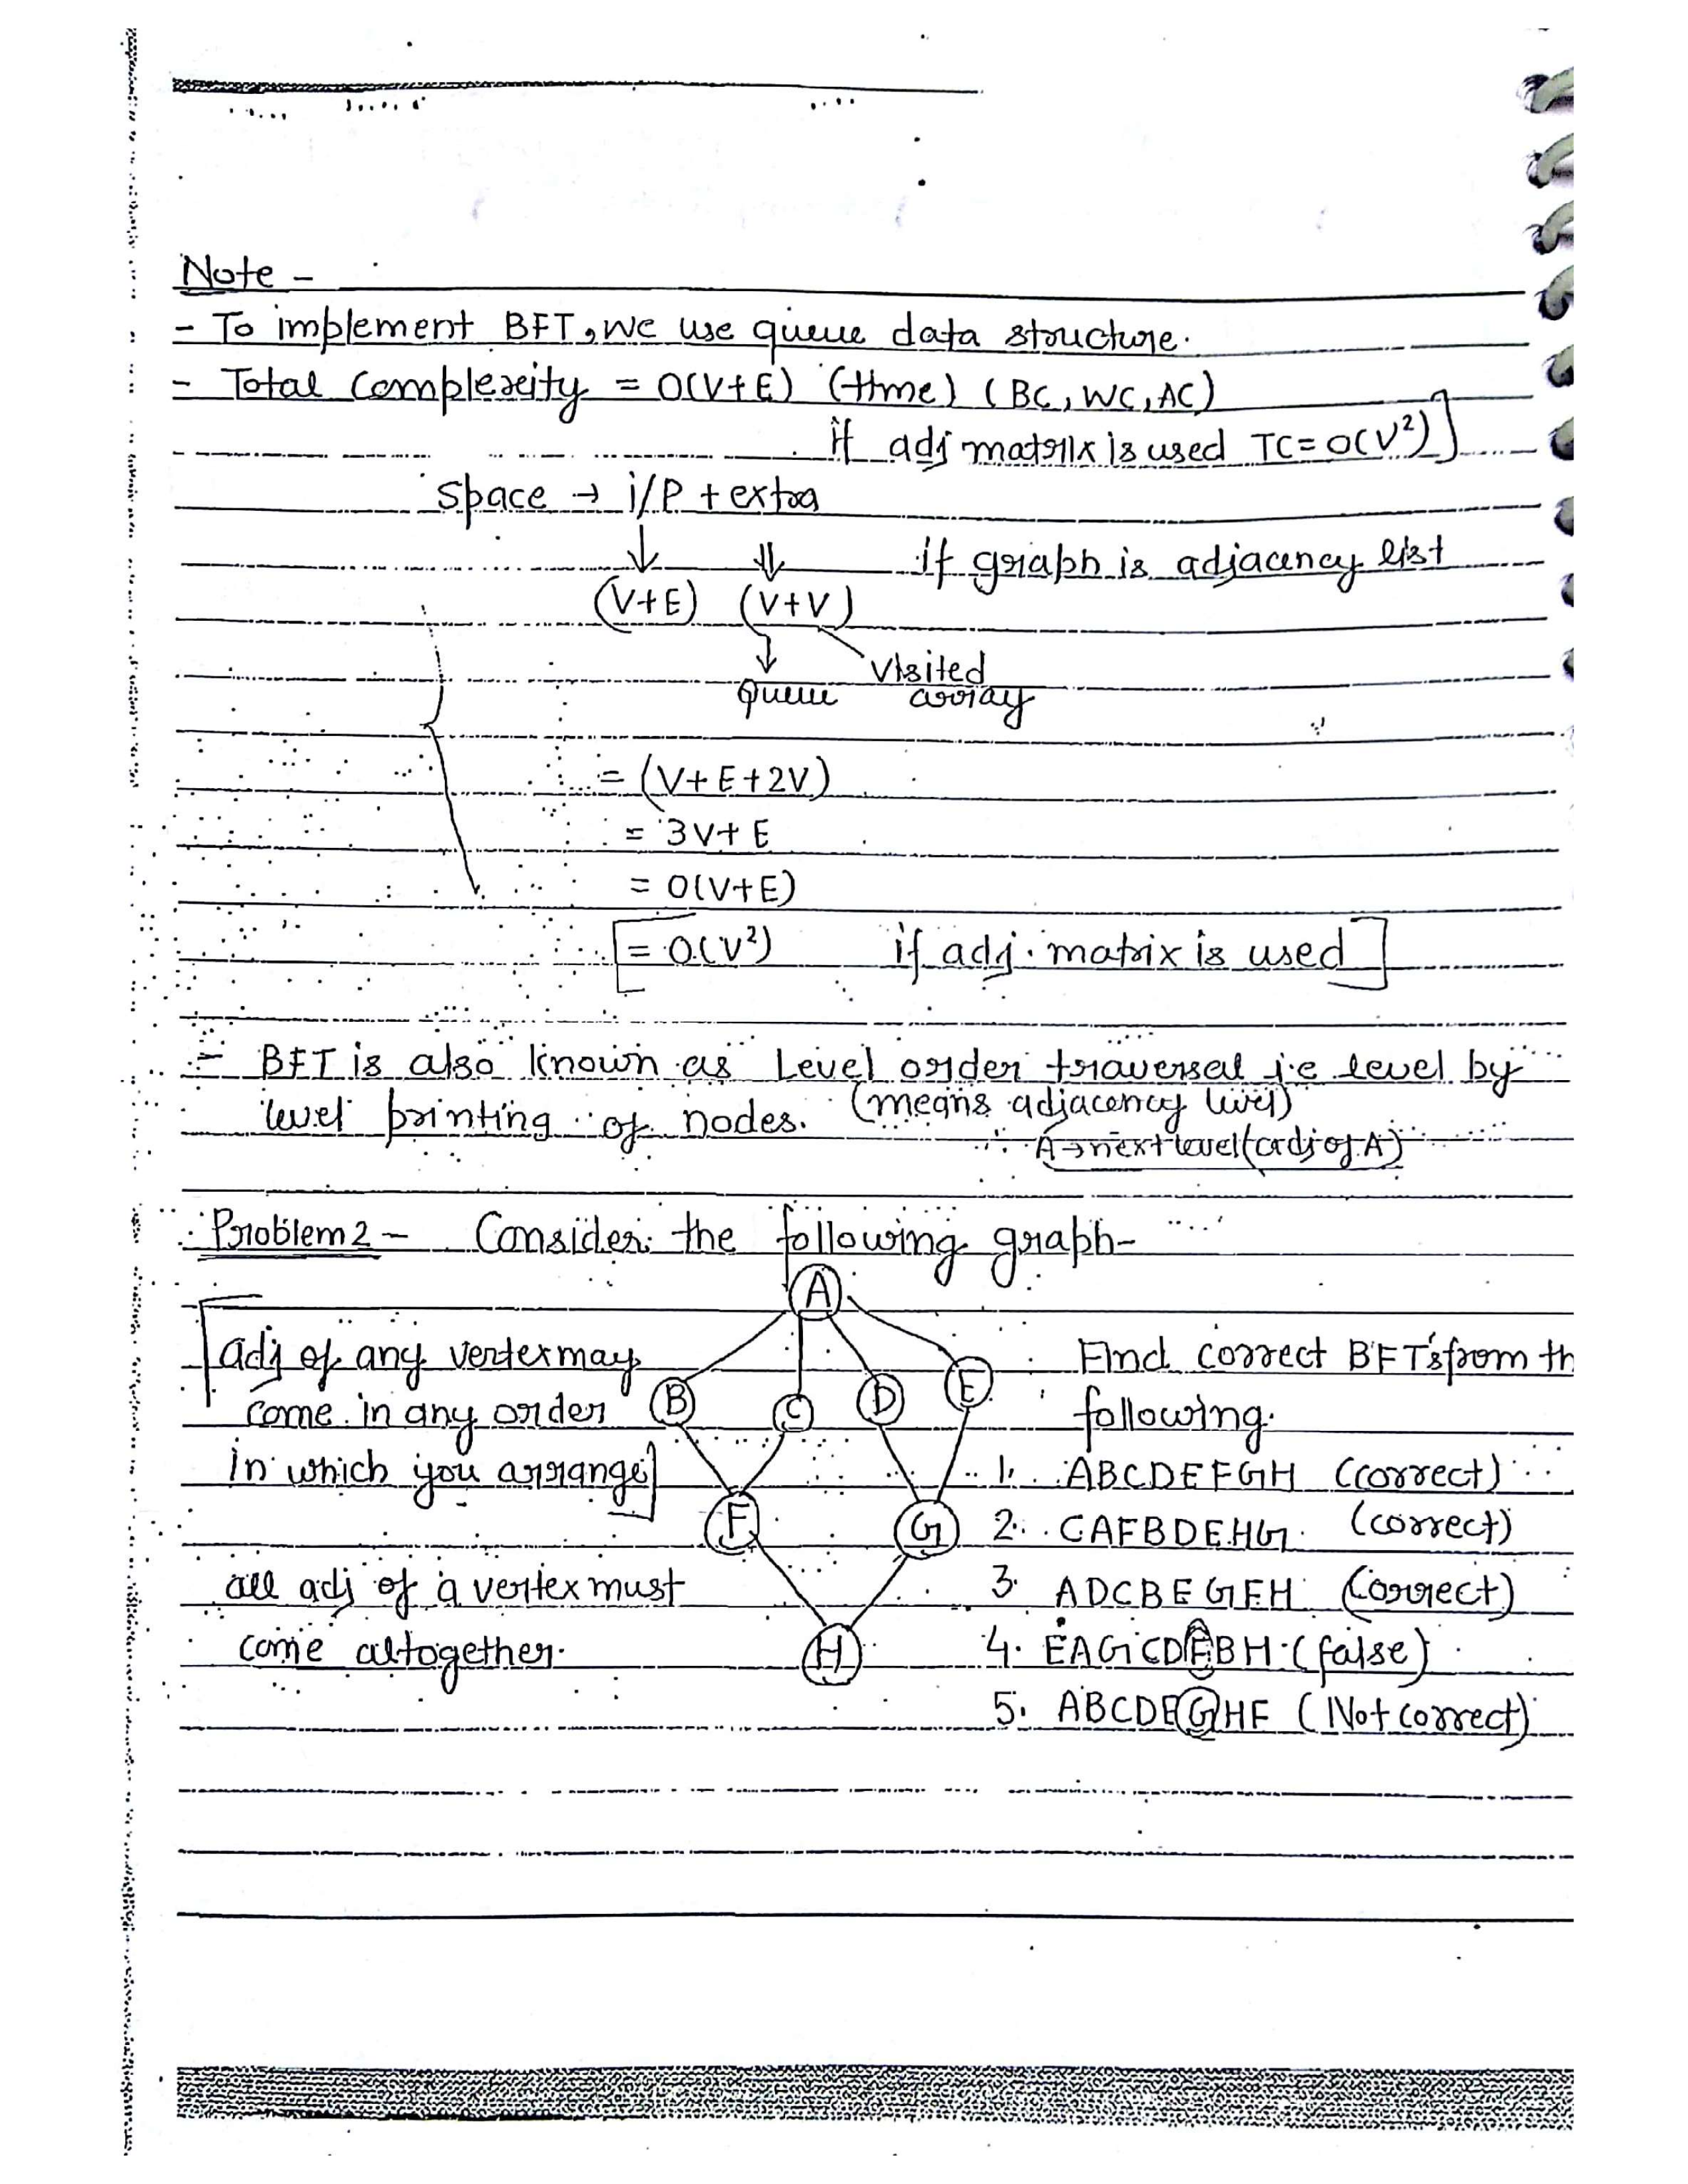 Note -
- To implement BFT, we use queue data structure.
- Total Complexity = O(V+E) (time) (BC, WC, AC)
if adj matrix is used TC = O(V²)]
Space → i/P + extra
if graph is adjacency list
(V+E) (V+V)
Visited
queue array
= (V+E+2V)
= 3V+E
= O(V+E)
[= O(V²) if adj. matrix is used]
- BFT is also known as Level order traversal i.e level by
level printing of nodes. (means adjacency level)
A→next level (adj of A)
Problem 2 - Consider the following graph-
A
[adj of any vertex may
come in any order
in which you arrange]
all adj of a vertex must
come altogether.
B C D E
F G
H
Find correct BFT's from th
following.
1. ABCDEFGH (correct)
2. CAFBDEHG (correct)
3. ADCBEGFH (correct)
4. EAGCDFBH (false)
5. ABCDEGHF (Not correct)